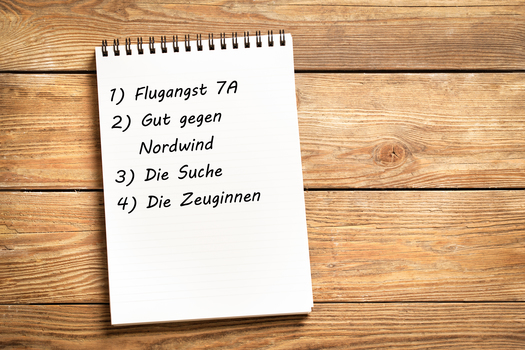 1) Flugangst 7A
2) Gut gegen
Nordwind
3) Die Suche
4) Die Zeuginnen